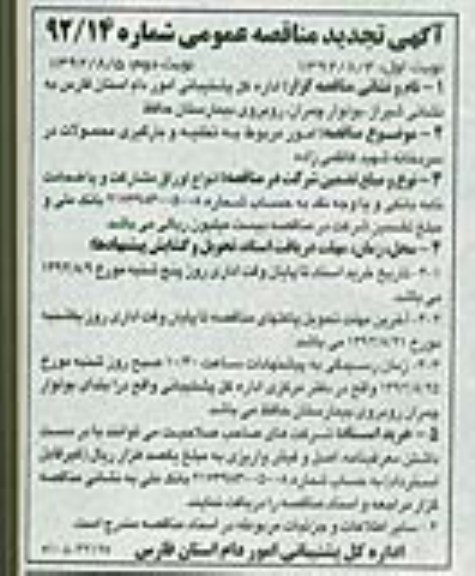 آگهی تجدید مناقصه عمومی شماره ۹۲/۱۴
نوبت اول: ۱۳۹۲/۸/۴ نوبت دوم: ۱۳۹۲/۸/۵
۱- نام و نشانی مناقصه گزار: اداره کل پشتیبانی امور دام استان فارس به
نشانی شیراز بولوار چمران، روبروی بیمارستان حافظ
۲- موضوع مناقصه: امور مربوط به تخلیه و بارگیری محصولات در
سردخانه شهید کاظمی زاده
۳- نوع و مبلغ تضمین شرکت در مناقصه: انواع اوراق مشارکت و یا ضمانت
نامه بانکی و یا وجه نقد به حساب شماره بانک ملی و
مبلغ تضمین شرکت در مناقصه بیست میلیون ریالی می باشد
۴- محل، زمان، مهلت دریافت اسناد، تحویل و گشایش پیشنهادها:
۴-۱- تاریخ خرید اسناد تا پایان وقت اداری روز پنج شنبه مورخ ۱۳۹۲/۸/۹
می باشد
۴-۲- آخرین مهلت تحویل پاکتهای مناقصه تا پایان وقت اداری روز
مورخ ۱۳۹۲/۸/۲۱ می باشد
۴-۳- زمان رسیدگی به پیشنهادات ساعت ۱۰:۳۰ صبح روز شنبه مورخ
۱۳۹۲/۸/۲۵ واقع در دفتر مرکزی اداره کل پشتیبانی واقع در ابتدای بولوار
چمران روبروی بیمارستان حافظ می باشد
۵- خرید اسناد: شرکت های صاحب صلاحیت می توانند با در دست
داشتن معرفینامه، اصل و فیش واریزی به مبلغ یکصد هزار ریال (غیرقابل
استرداد) به حساب شماره بانک ملی به نشانی مناقصه
گزار مراجعه و اسناد مناقصه را دریافت نمایند.
۶- سایر اطلاعات و جزئیات مربوطه در اسناد مناقصه مندرج است.
اداره کل پشتیبانی امور دام استان فارس